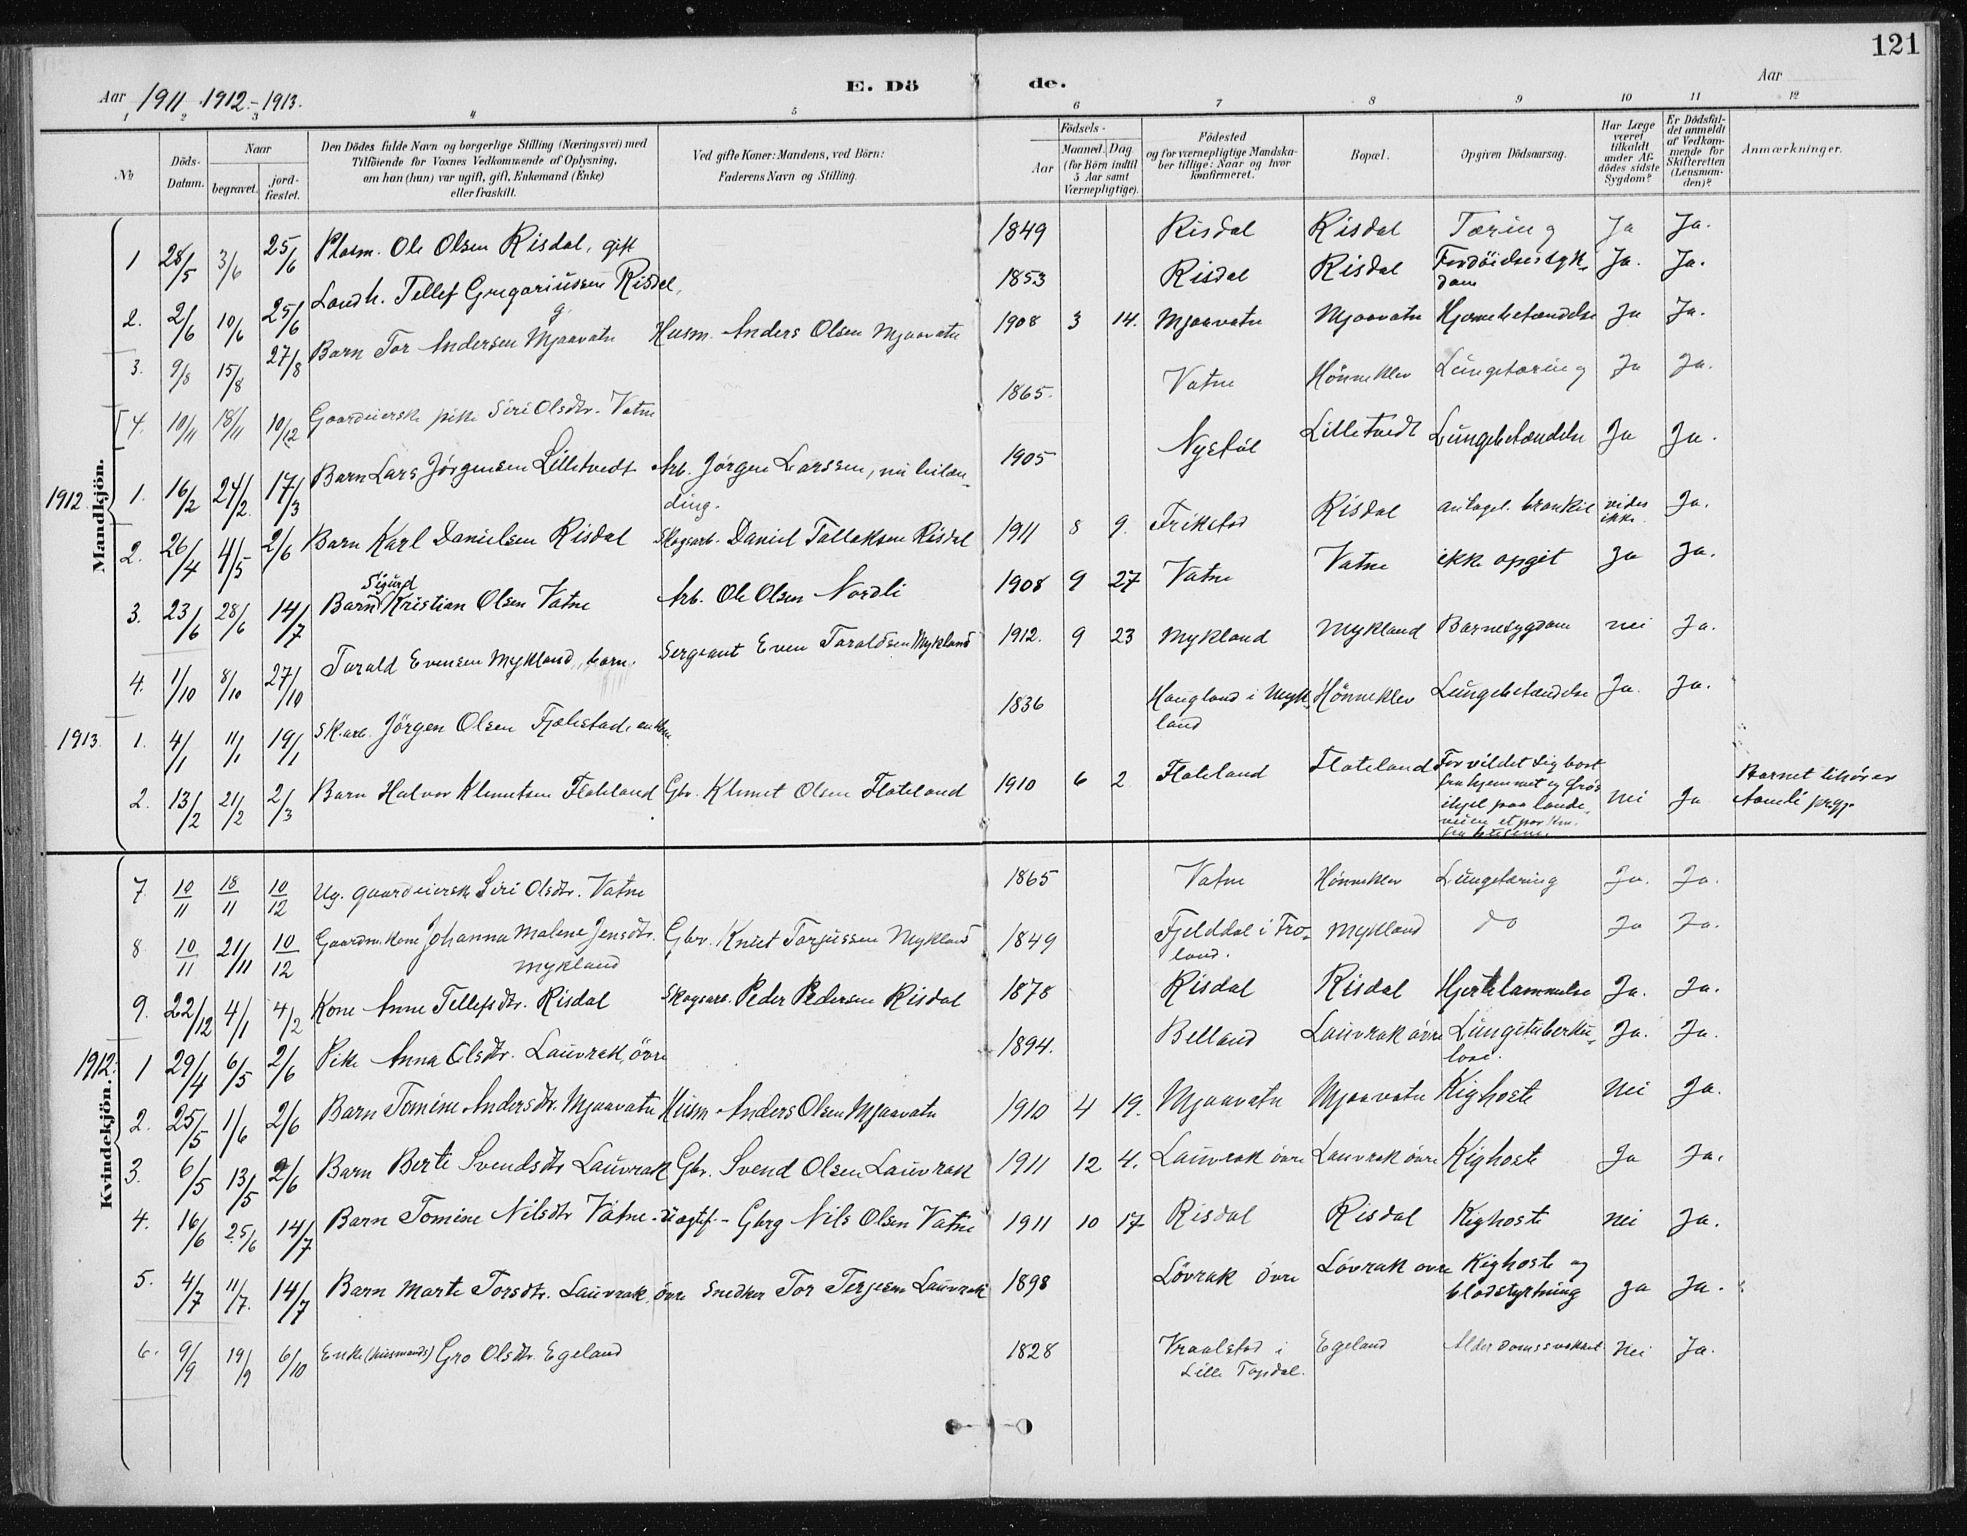 121
Aar 1911. 1912.-1913.
E. Dö de.
Aar
1 2 3 4 5 6 7 8 9 10 11 12
No
Döds-Datum.
Naar
begravet.
jord-fæstet.
Den Dödes fulde Navn og borgerlige Stilling (Næringsvei) med
Tilföiende for Voxnes Vedkommende af Oplysning,
om han (hun) var ugift, gift, Enkemand (Enke)
eller fraskilt.
Ved gifte Koner: Mandens, ved Börn:
Faderens Navn og Stilling.
Födsels-
Aar
Maaned. Dag
(for Börn indtil
5 Aar samt
Værnepligtige).
Födested
og for værnepligtige Mandska-
ber tillige: Naar og hvor
konfirmeret.
Bopæl.
Opgiven Dödsaarsag.
Har Læge
været
tilkaldt
under Af-
dödes sidste
Sygdom?
Er Dödsfal-
det anmeldt
af Vedkom-
mende for
Skifteretten
(Lensman-
den)?
Anmærkninger.
Mandkjön.
1 28/5 3/6 25/6 Plasm. Ole Olsen Risdal, gift 1849 Risdal Risdal Tæring Ja Ja.
2. 2/6 10/6 25/6 Landh. Tellef Gregoriussen Risdal, g. 1853 Risdal Risdal Fordöielsessyk-dom Ja. Ja.
3. 9/8 15/8 27/8 Barn Tor Andersen Mjaavatn Husm. Anders Olsen Mjaavatn 1908 3 14. Mjaavatn Mjaavatn Hjernebetændelse Ja Ja.
4. 10/11 18/11 10/12 Gaardeierske pike Siri Olsdtr. Vatne 1865. Vatne Hönneklev Lungetæring Ja Ja.
1912 1. 16/2 24/2. 17/3 Barn Lars Jörgensen Lilletvedt Arb. Jörgen Larssen, nu leilæn-ding. 1905 Nystöl Lilletvedt Lungebetændelse Ja Ja.
2. 26/4 4/5 2/6 Barn Karl Danielsen Risdal Skogsarb. Daniel Salleksen Risdal 1911 8 9. Frikstad Risdal antagel. bronkit vides ikke. Ja.
3. 23/6 28/6 14/7 Barn Sigurd Kristian Olsen Vatne Arb. Ole Olsen Nordli 1908 9 27 Vatne Vatne ikke opgit Ja Ja.
4. 1/10 8/10 27/10 Tarald Evensen Mykland, barn. Sergeant Even Taraldsen Mykland 1912. 9 23 Mykland Mykland Barnesygdom nei Ja.
1913. 1. 4/1 11/1 19/1 Sk.arb. Jörgen Olsen Fjælestad, enkem. 1836 Haugland i Myk-land Hönneklev Lungebetændelse Ja. Ja.
2. 13/2 21/2 2/3 Barn Halvor Klemetsen Flateland Gbr. Klemet Olsen Flateland 1910 6 2 Flateland Flateland Forvildet sig bort
fra hjemmet og frös
ihjel paa lande-
veien et par km.
fra nei Ja Barnet tilhörer
Aamli prgj.
Kvindekjön.
7. 10/11 18/11 10/12 Ug. gaardeierske Siri Olsdtr. Vatne 1865 Vatne Hönneklev Lungetæring Ja. Ja.
8. 10/11 21/11 10/12 Gaardm.kone Johanna Malene Jensdtr. Mykland Gbr. Knut Torjussen Mykland 1849 Fjelddal i Fro-land. Mykland do Ja Ja.
9. 22/12 4/1 4/2 Kone Anne Tellefsdtr. Risdal Skogsarb. Peder Pedersen Risdal 1878 Risdal Risdal Hjertelammelse Ja. Ja.
1912: 1 29/4 6/5 2/6 Pike Anna Olsdtr. Lauvrak, övre 1894. Belland Lauvrak övre Lungetuberku-lose. Ja. Ja.
2. 25/5 1/6 2/6 Barn Tomine Andersdtr. Mjaavatn Husm Anders Olsen Mjaavatn 1910 4 19. Mjaavatn Mjaavatn Kighoste nei Ja.
3. 6/5 13/5 2/6 Barn Berte Svendsdtr Lauvrak Gbr. Svend Olsen Lauvrak 1911 12 4. Lauvrak övre Lauvrak övre Kighoste Ja Ja.
4. 16/6 25/6 14/7 Barn Tomine Nilsdtr Vatne - uegtef - Gbrg Nils Olsen Vatne 1911 10 17. Risdal Risdal Kighoste nei Ja.
5. 4/7 11/7. 14/7 Barn Marte Torsdtr. Lauvrak, övre Snedker Tor Terjesen Lauvrak 1898 Lövrak övre Lövrak övre Kighoste og blodstyrtning Ja Ja.
6. 9/9 19/9 6/10 Enke (husmands) Gro Olsdtr. Egeland 1828 Vraalstad i Lille Topdal. Egeland Alderdomssvakhet nei Ja.